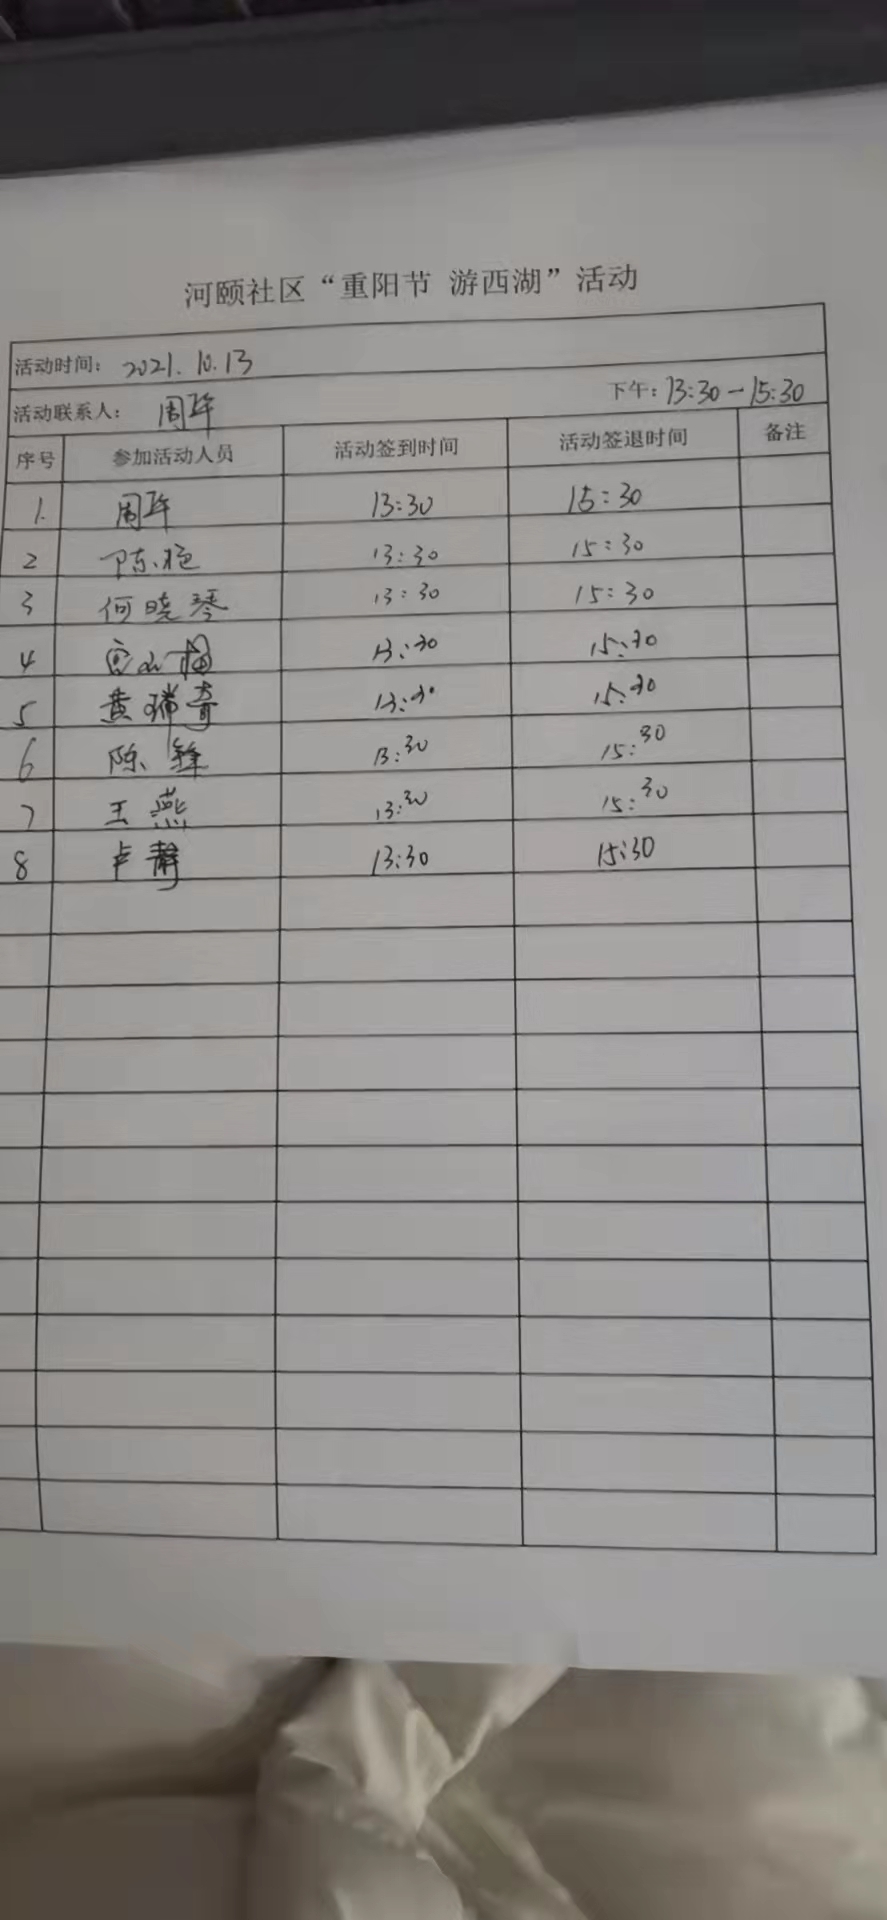 河颐社区“重阳节 游西湖”活动
活动时间： 2021.10.13
活动联系人： 下午：13:30—15:30
序号 参加活动人员 活动签到时间 活动签退时间 备注
1. 13:30 15:30
2 13:30 15:30
3 何晓琴 13:30 15:30
4 13:30 15:30
5 黄瑞奇 13:30 15:30
6 陈锋 13:30 15:30
7 王燕 13:30 15:30
8 卢静 13:30 15:30